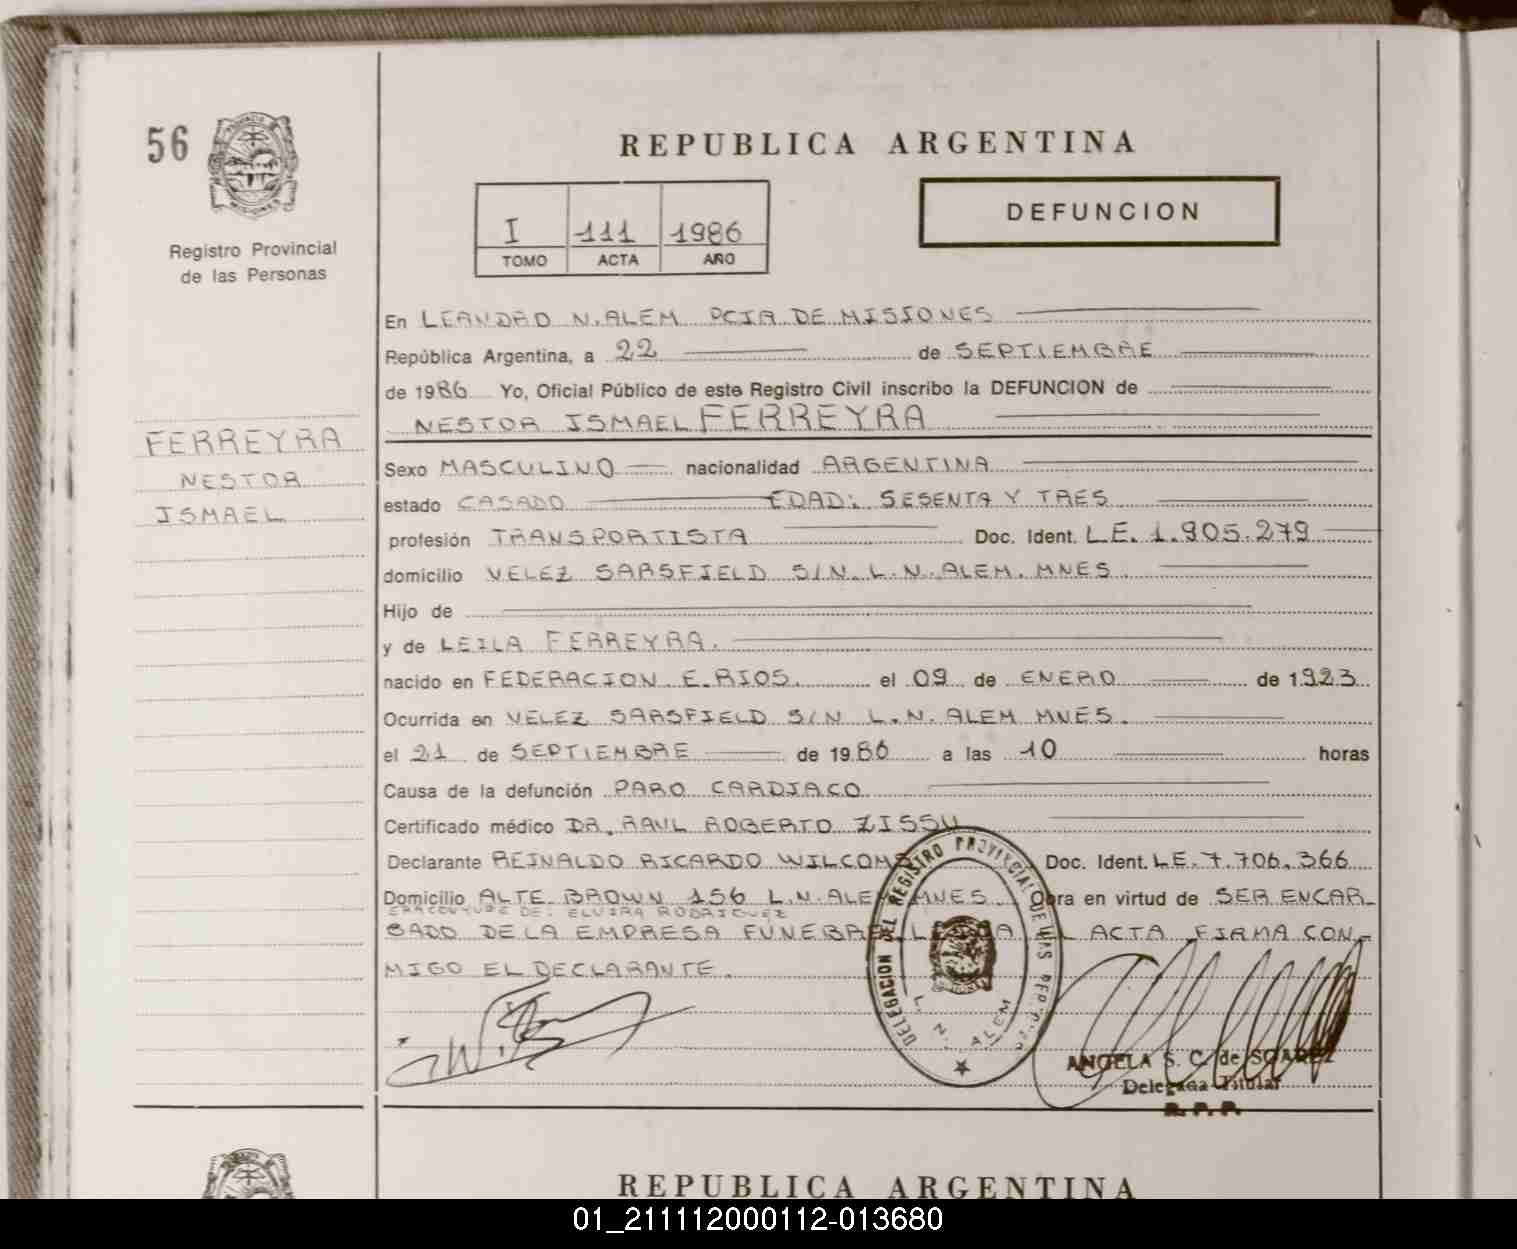 56
Registro Provincial
de las Personas
FERREYRA
NESTOR
ISMAEL
REPUBLICA ARGENTINA
I 111 1986
TOMO ACTA AÑO
DEFUNCION
En LEANDRO N. ALEM PCIA DE MISIONES
República Argentina, a 22 de SEPTIEMBRE
de 1986 Yo, Oficial Público de este Registro Civil inscribo la DEFUNCION de
NESTOR ISMAEL FERREYRA
Sexo MASCULINO nacionalidad ARGENTINA
estado CASADO EDAD: SESENTA Y TRES
profesión TRANSPORTISTA Doc. Ident. L.E. 1.905.279
domicilio VELEZ SARSFIELD S/N. L.N. ALEM. MNES
Hijo de
y de LEILA FERREYRA.
nacido en FEDERACION E. RIOS. el 09 de ENERO de 1923
Ocurrida en VELEZ SARSFIELD S/N L.N. ALEM MNES.
el 21 de SEPTIEMBRE de 1986 a las 10 horas
Causa de la defunción PARO CARDIACO
Certificado médico DR. RAUL ROBERTO ZISSU
Declarante REINALDO RICARDO WILCOMS Doc. Ident. L.E. 7.706.366
Domicilio ALTE BROWN 156 L.N. ALEM MNES. Obra en virtud de SER ENCAR-
DE: ELVIRA RODRIGUEZ
GADO DE LA EMPRESA FUNEBRE LEIDA EL ACTA FIRMA CON-
MIGO EL DECLARANTE.
DELEGACION DEL REGISTRO PROVINCIAL DE LAS PERSONAS
L. N. ALEM
ANGELA S. C. de SOAREZ
Delegada Titular
R. P. P.
REPUBLICA ARGENTINA
01_211112000112-013680